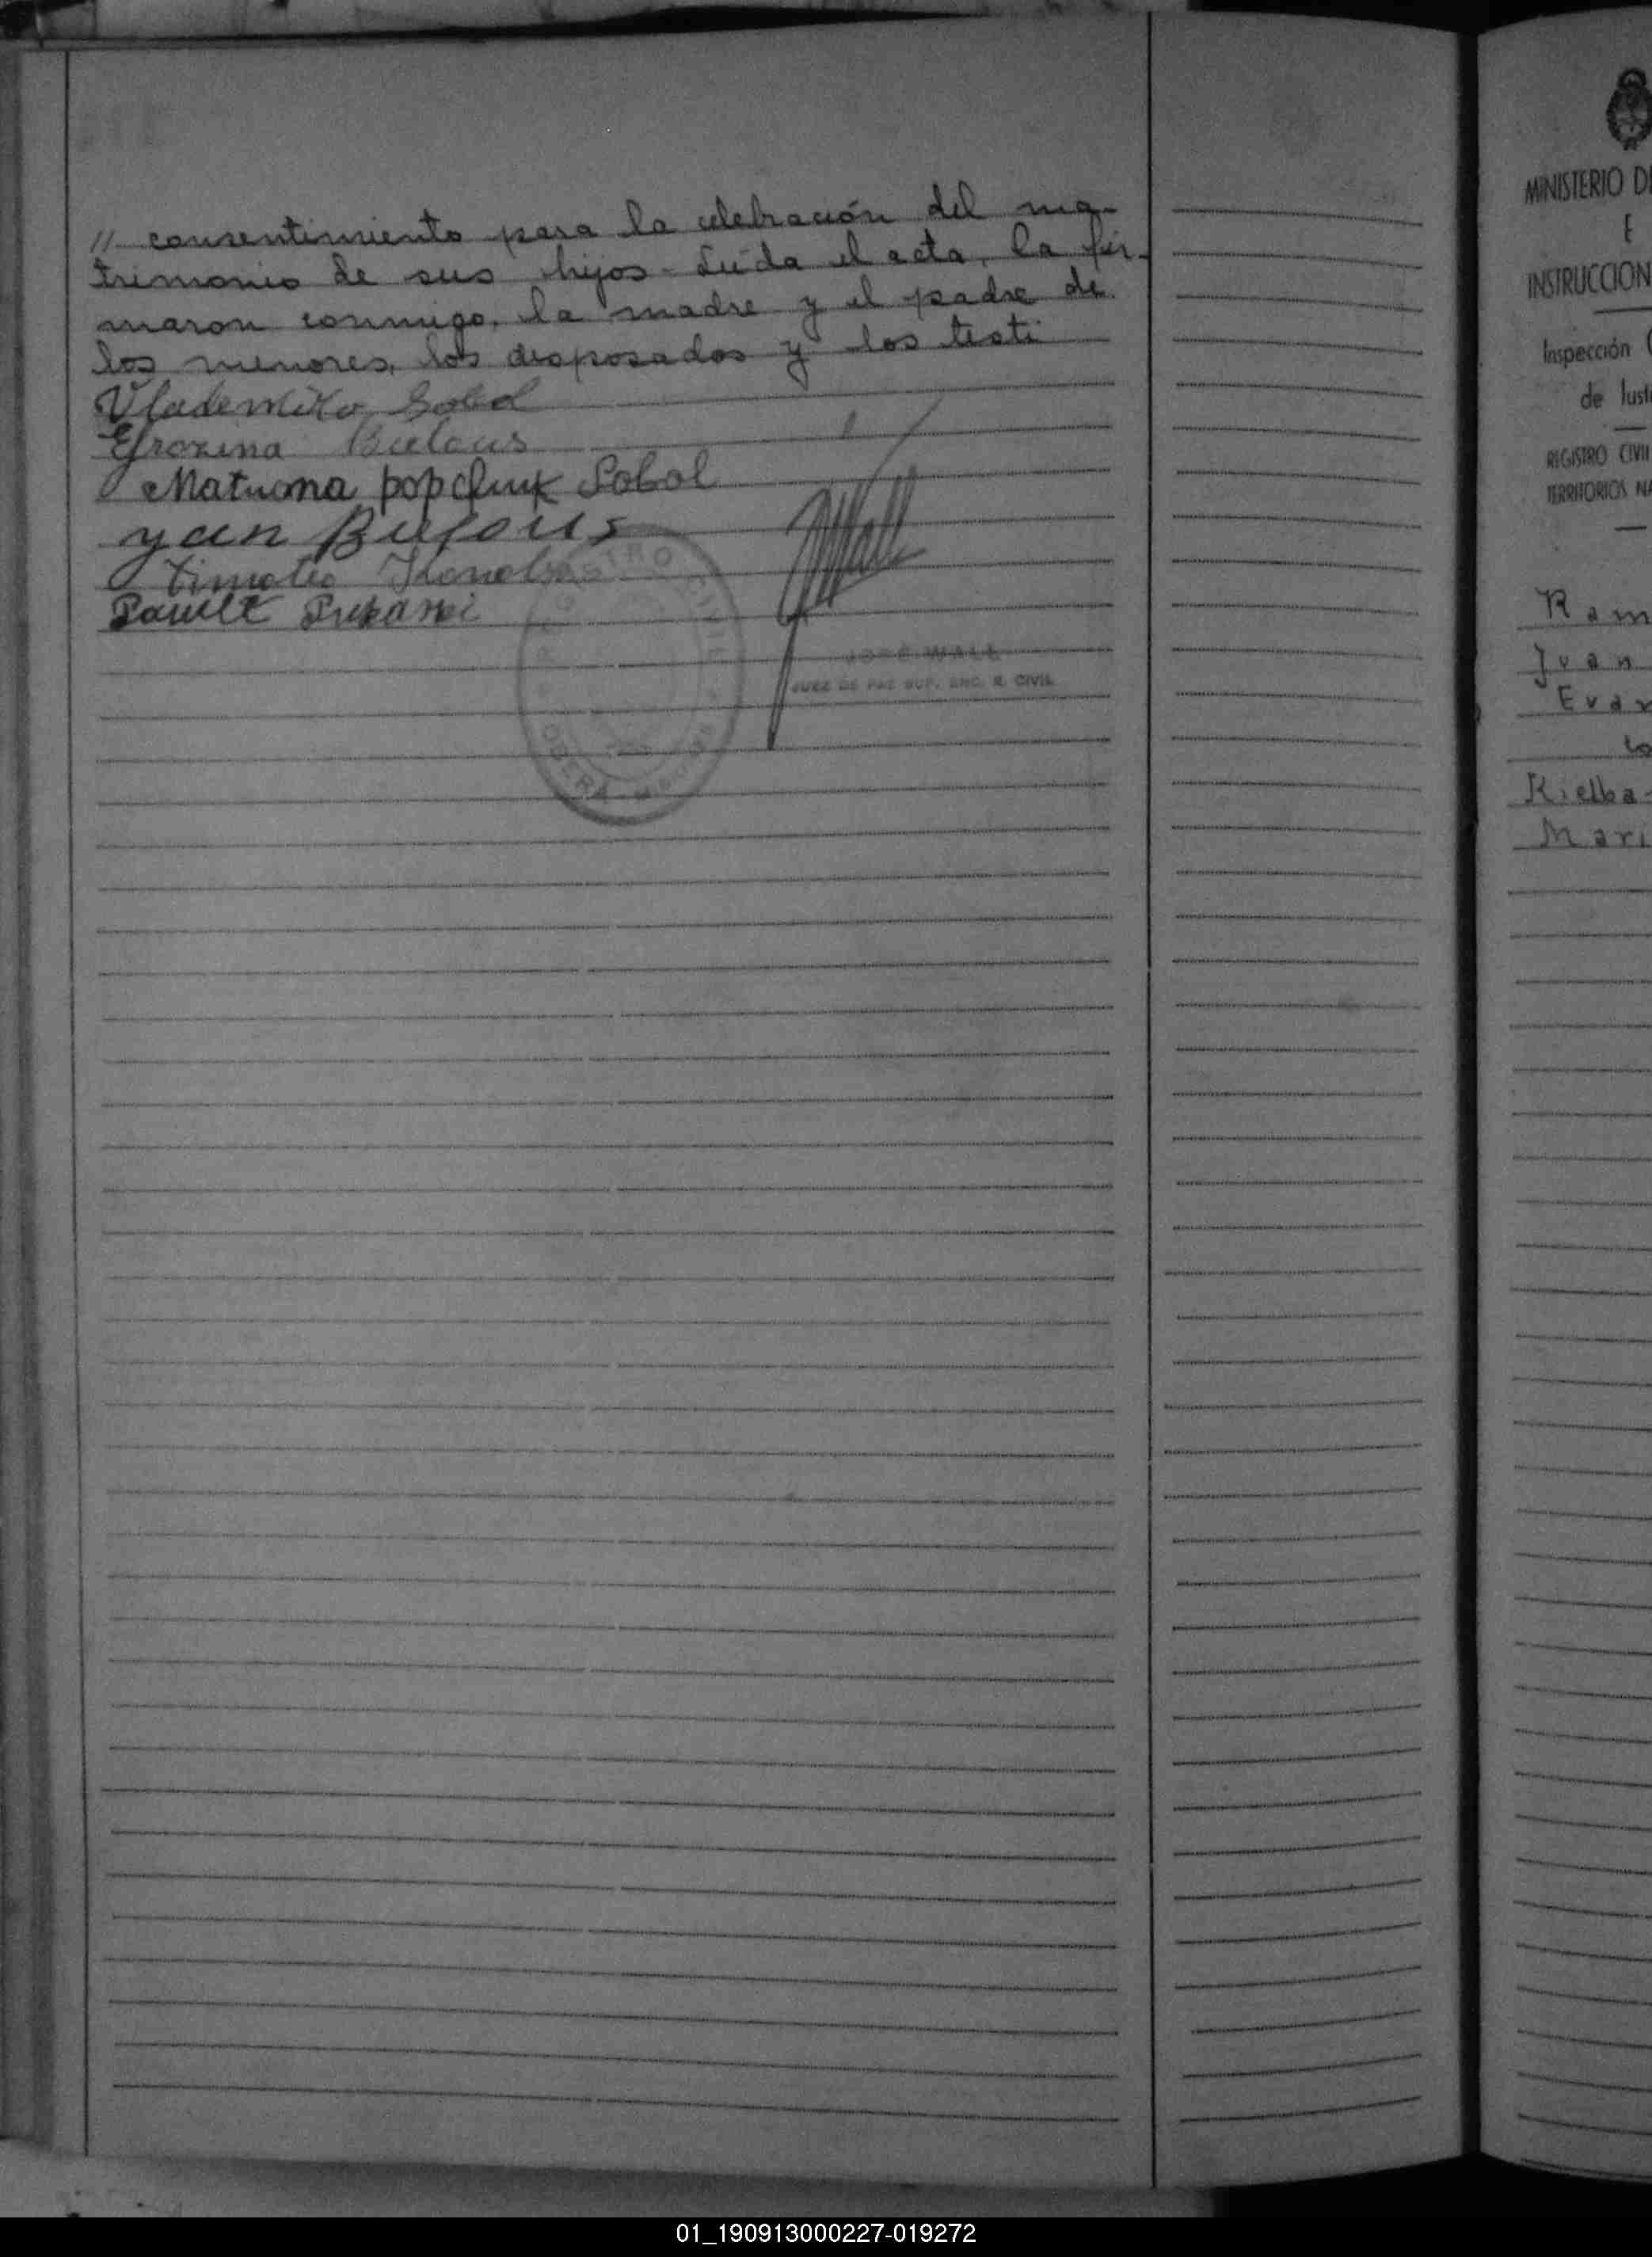 // consentimiento para la celebración del ma-
trimonio de sus hijos. Leída el acta, la fir-
maron conmigo, la madre y el padre de
los menores, los desposados y los testi
Vlademiro Sobol
Efrozina Bielous
Matrona popchuk Sobol
yan Bielous
Timoteo
REGISTRO CIVIL
OBERA
JOSÉ WALL
JUEZ DE PAZ SUP. ENC. R. CIVIL
MINISTERIO DE
E
INSTRUCCION
Inspección
de Justi
REGISTRO CIVIL
TERRITORIOS NA
Ram
Juan
Evar
Kielba-
Mari
01_190913000227-019272